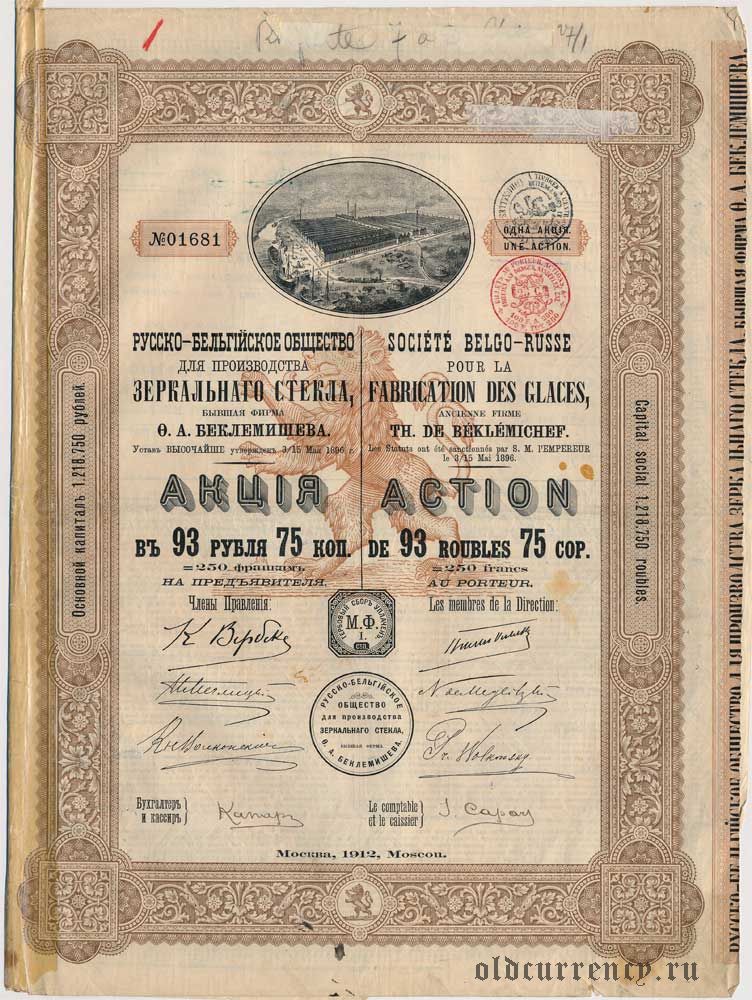 27/1
№01681
ОДНА АКЦІЯ.
UNE ACTION.
РУССКО-БЕЛЬГІЙСКОЕ ОБЩЕСТВО
ДЛЯ ПРОИЗВОДСТВА
ЗЕРКАЛЬНАГО СТЕКЛА,
БЫВШАЯ ФИРМА
Ѳ. А. БЕКЛЕМИШЕВА.
Уставъ ВЫСОЧАЙШЕ утвержденъ 3/15 Мая 1896 г.
SOCIÉTÉ BELGO-RUSSE
POUR LA
FABRICATION DES GLACES,
ANCIENNE FIRME
TH. DE BÉKLÉMICHEF.
Les Statuts ont été sanctionnés par S. M. l'EMPEREUR
le 3/15 Mai 1896.
АКЦІЯ
ВЪ 93 РУБЛЯ 75 КОП.
=250 франкамъ
НА ПРЕДЪЯВИТЕЛЯ.
ACTION
DE 93 ROUBLES 75 COP.
=250 francs
AU PORTEUR.
Члены Правленія:
Les membres de la Direction:
ГЕРБОВЫЙ СБОРЪ УПЛАЧЕНЪ
М.Ф.
1.
СПБ
РУССКО-БЕЛЬГІЙСКОЕ
ОБЩЕСТВО
для производства
ЗЕРКАЛЬНАГО СТЕКЛА,
БЫВШАЯ ФИРМА
Ѳ. А. БЕКЛЕМИШЕВА.
Бухгалтеръ
и кассиръ
Le comptable
et le caissier
Москва, 1912, Moscou.
Основной капиталъ 1.218.750 рублей.
Capital social 1.218.750 roubles.
РУССКО-БЕЛЬГІЙСКОЕ ОБЩЕСТВО ДЛЯ ПРОИЗВОДСТВА ЗЕРКАЛЬНАГО СТЕКЛА, БЫВШАЯ ФИРМА Ѳ. А. БЕКЛЕМИШЕВА
oldcurrency.ru